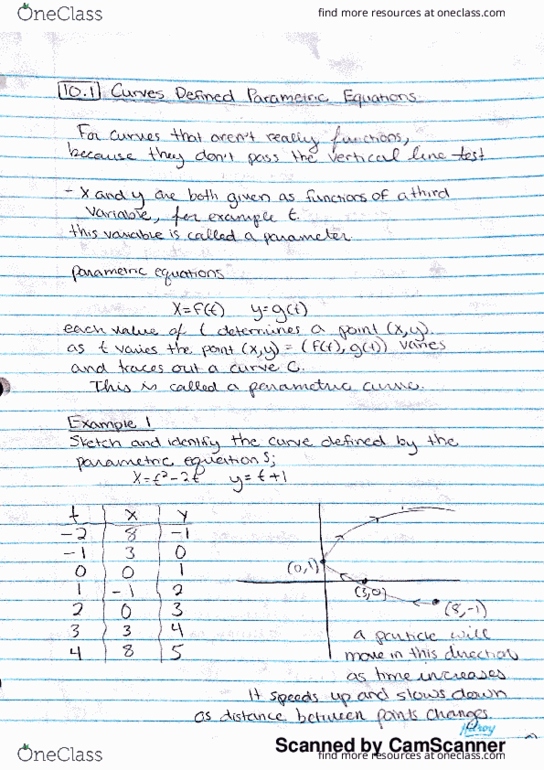 OneClass
find more resources at oneclass.com
10.1 Curves Defined Parametric Equations
For curves that aren't really functions,
because they don't pass the vertical line test
- x and y are both given as functions of a third
variable, for example t.
this variable is called a parameter.
parametric equations
x=f(t) y=g(t)
each value of t determines a point (x,y).
as t varies the point (x,y) = (f(t), g(t)) varies
and traces out a curve C.
This is called a parametric curve.
Example 1
Sketch and identify the curve defined by the
parametric equations;
x=t²-2t y=t+1
t x y
-2 8 -1
-1 3 0
0 0 1
1 -1 2
2 0 3
3 3 4
4 8 5
(0,1)
(3,0)
(8,-1)
a particle will
move in this direction
as time increases
It speeds up and slows down
as distance between points changes.
Scanned by CamScanner
OneClass
find more resources at oneclass.com